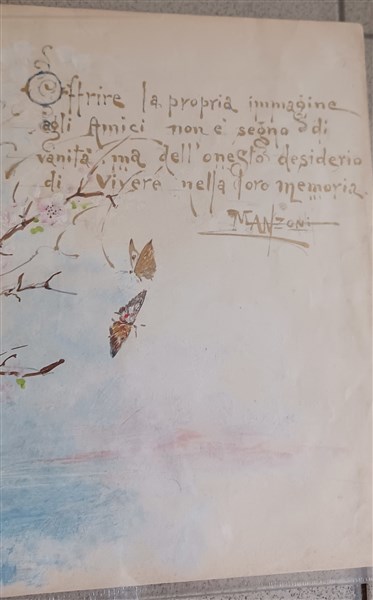 Offrire la propria immagine
agli Amici non è segno di
vanità ma dell'onesto desiderio
di vivere nella loro memoria.
MANZONI